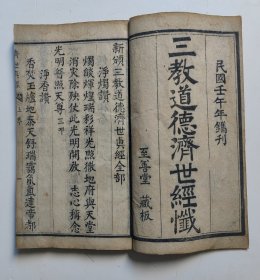 民國壬午年鐫刊
三教道德濟世經懺
至善堂藏板
新頒三教道德濟世真經全部
淨燭讚
燭燄輝煌瑞彩祥光照徹地府與天堂
消災除殃伏此光明開啟 志心稱念
光明普照天尊 三千
淨香讚
香焚玉爐地泰天舒瑞靄氤氳達帝都